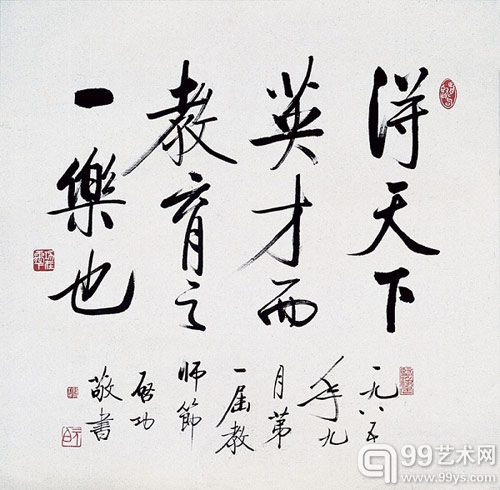 得天下
英才而
教育之
一樂也
一九八五
年九
月第
一届教
师節
启功
敬書
99艺术网
www.99ys.com